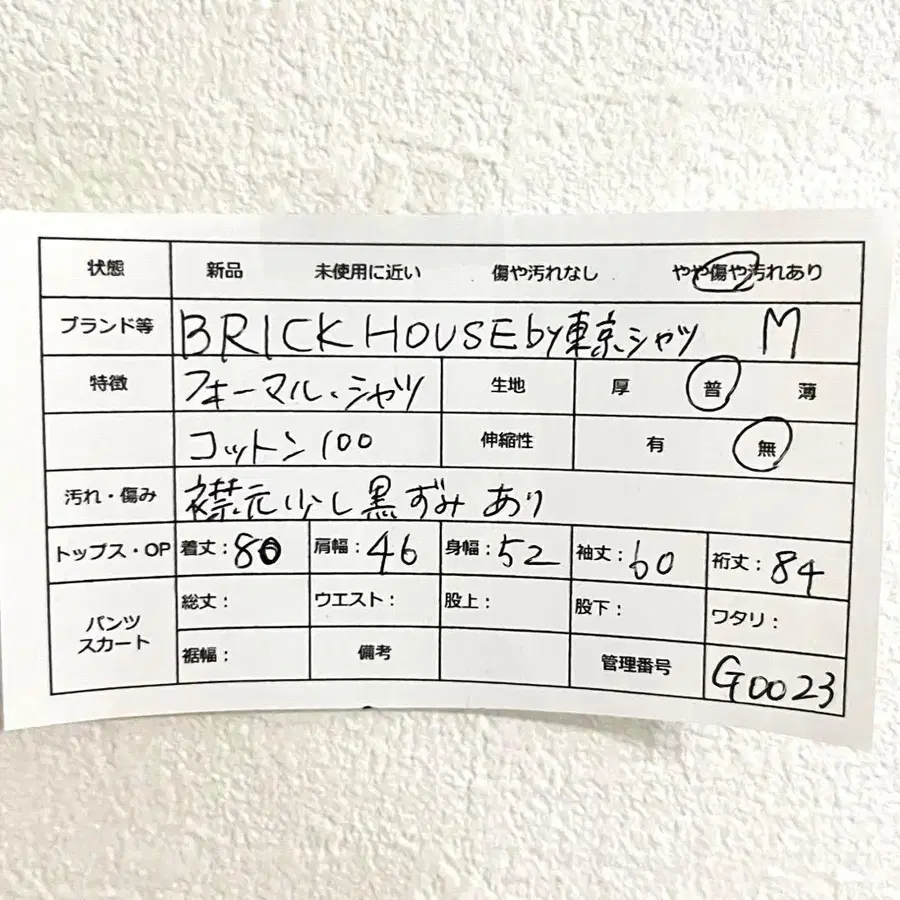 状態 新品 未使用に近い 傷や汚れなし やや傷や汚れあり
ブランド等 BRICK HOUSE by 東京シャツ M
特徴 フォーマル・シャツ 生地 厚 普 薄
コットン100 伸縮性 有 無
汚れ・傷み 襟元少し黒ずみあり
トップス・OP 着丈:80 肩幅:46 身幅:52 袖丈:60 裄丈:84
パンツ スカート 総丈: ウエスト: 股上: 股下: ワタリ:
裾幅: 備考 管理番号 G0023